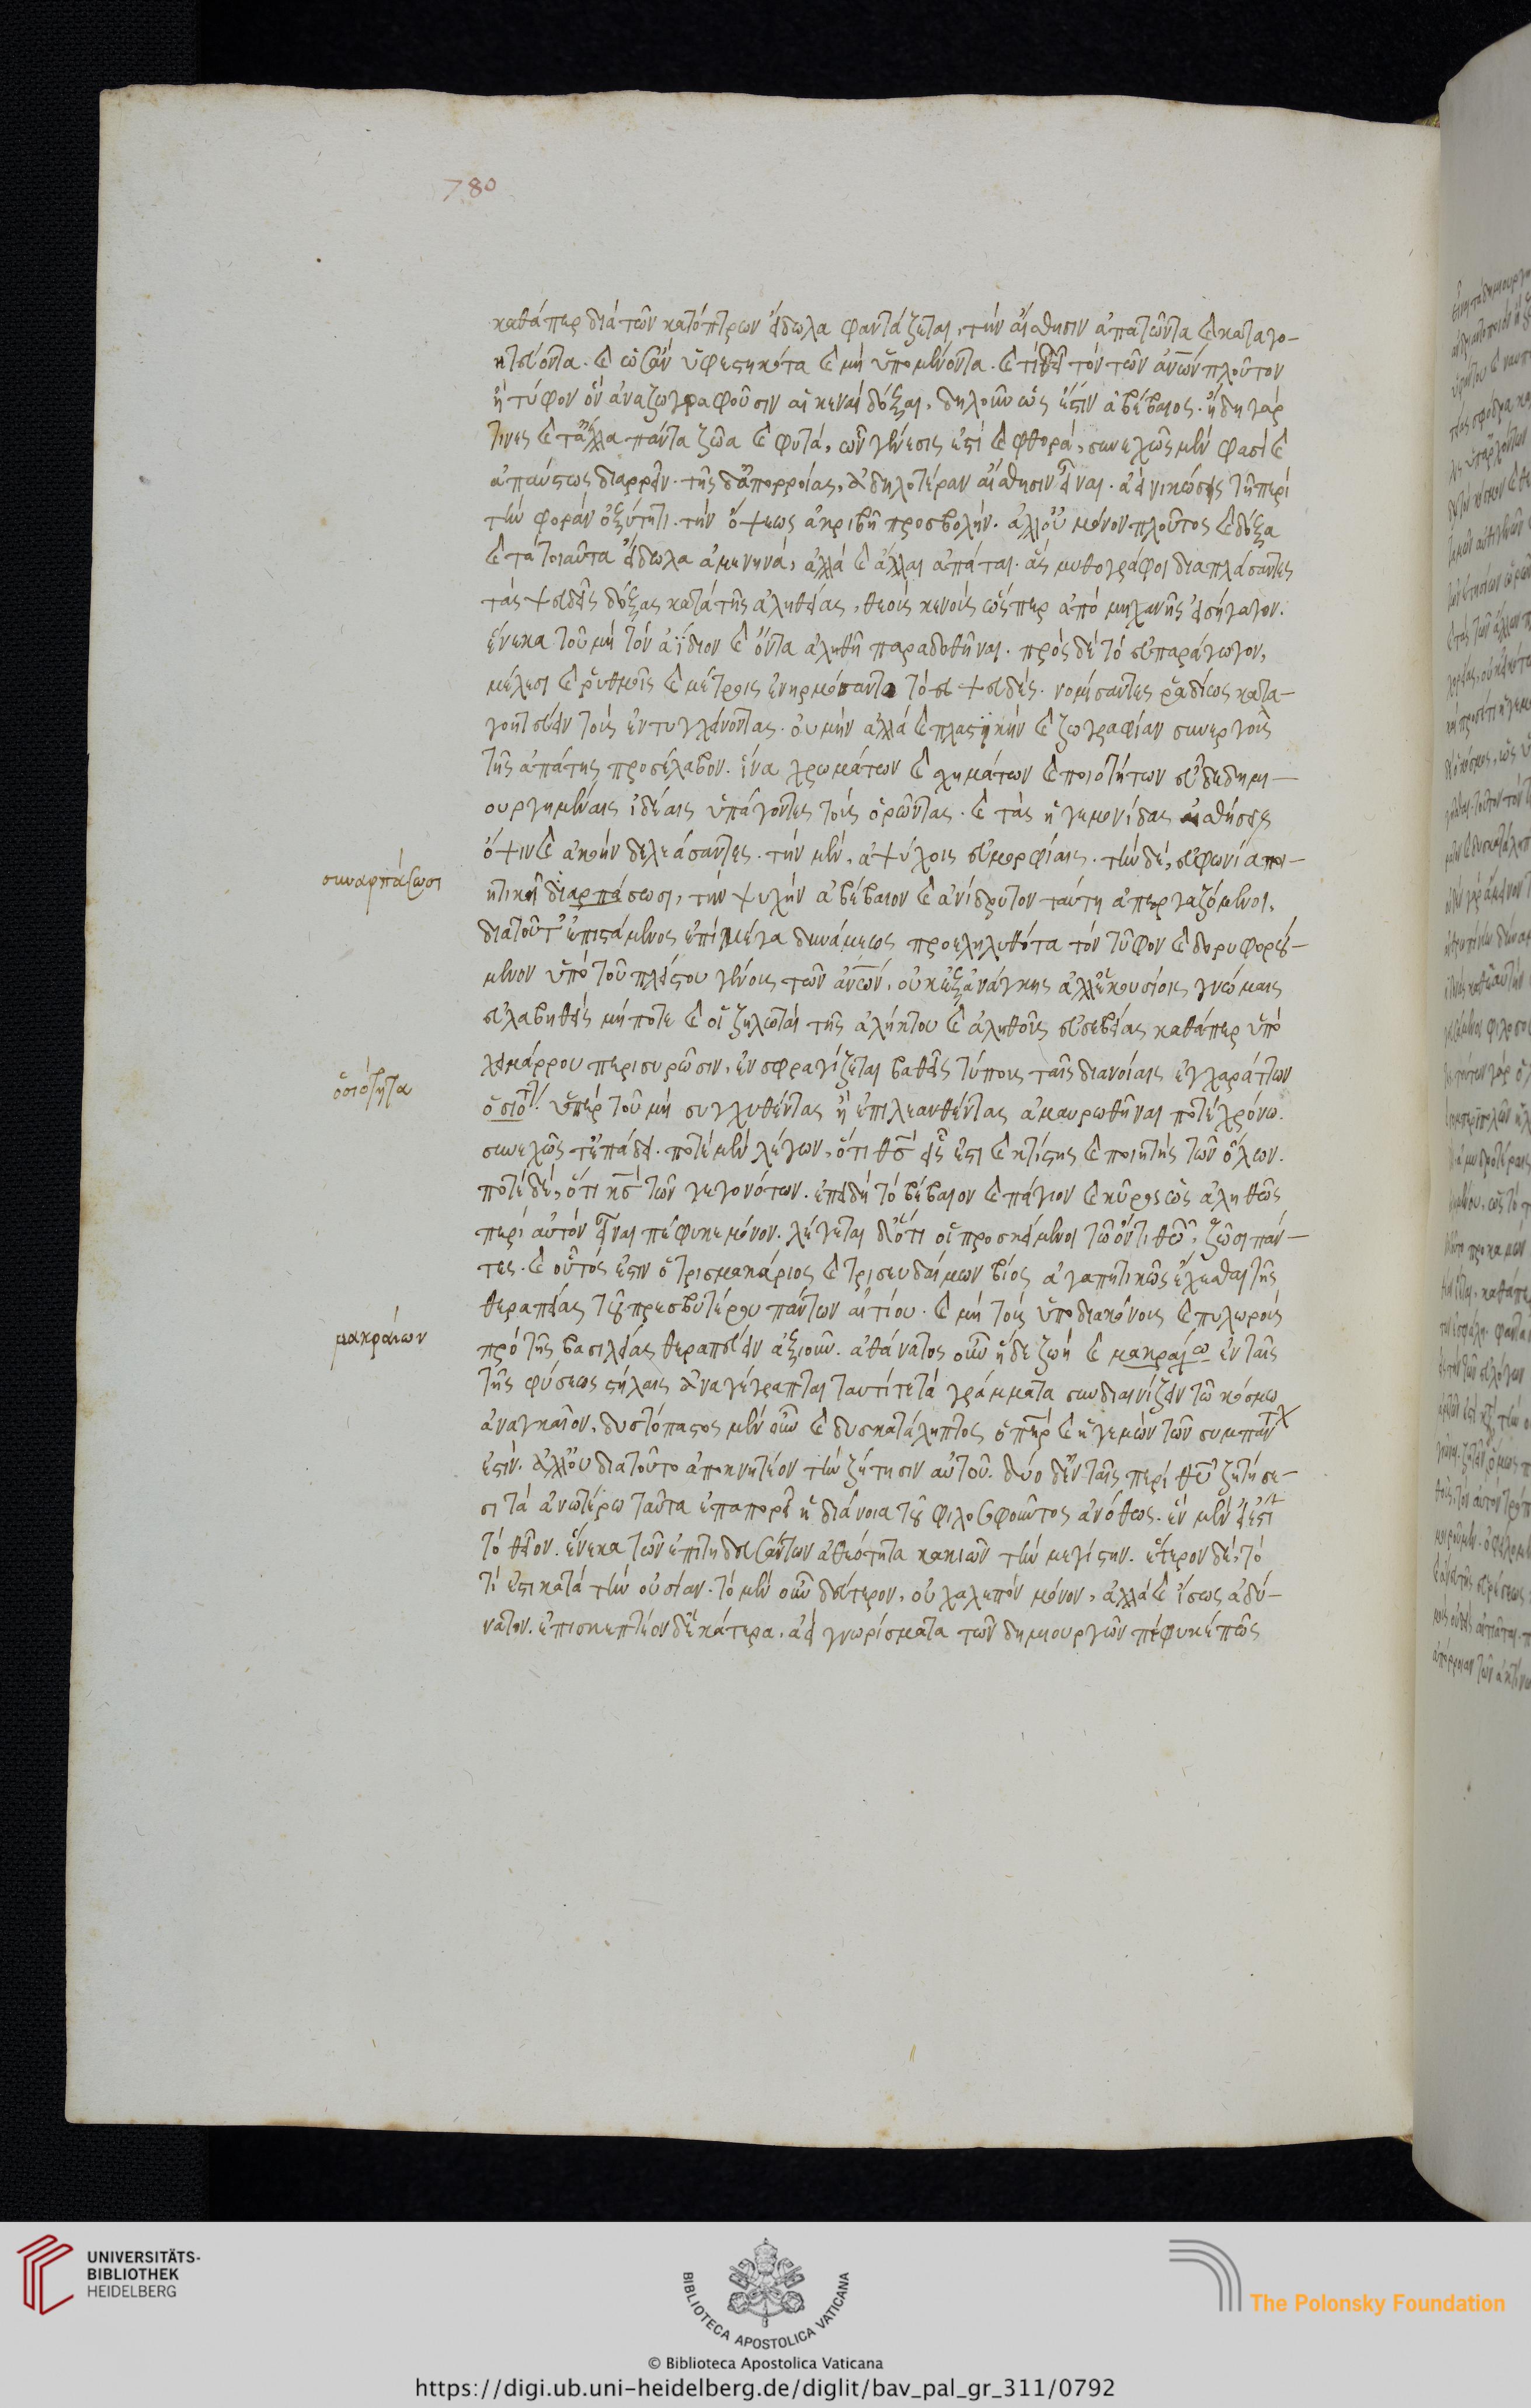 780
καθάπερ διὰ τῶν κατόπτρων εἴδωλα φαντάζεται, τὴν αἴσθησιν ἀπατῶντα καὶ καταγο-
ητεύοντα. καὶ ὡσὰν ὑφεστηκότα καὶ μὴ ὑπομένοντα. καὶ τί δεῖ τὸν τῶν ἀνων πλοῦτον
ἢ τύφον ὃν ἀναζωγραφοῦσιν αἱ κεναὶ δόξαι, δηλοῦν ὡς ἔστιν ἀβέβαιος. ἤδη γάρ
τινες καὶ τἄλλα πάντα ζῶα καὶ φυτά, ὧν γένεσις ἐστὶ καὶ φθορά, συνεχῶς μέν φασὶ καὶ
ἀπαύστως διαρρεῖν. τῆς δ' ἀπορροίας, ἀδηλοτέραν αἴσθησιν εἶναι. ἀεὶ νικώσης τῆ περὶ
τὴν φορὰν ὀξύτητι. τὴν ὄψεως ἀκριβῆ προσβολήν. ἀλλ' οὐ μόνον πλοῦτος καὶ δόξα
καὶ τὰ τοιαῦτα εἴδωλα ἀμενηνά, ἀλλὰ καὶ ἄλλαι ἀπάται. ἃς μυθογράφοι διαπλάσαντες
τὰς ψευδεῖς δόξας κατὰ τῆς ἀληθείας, θεοὺς κενοὺς ὥσπερ ἀπὸ μηχανῆς εἰσήγαγον.
ἕνεκα τοῦ μὴ τὸν ἀΐδιον καὶ ὄντα ἀληθῆ παραδοθῆναι. πρὸς δὲ τὸ εὐπαράγωγον,
μέλεσι καὶ ῥυθμοῖς καὶ μέτροις ἐνηρμόσαντο τὸ ψευδές. νομίσαντες ῥαδίως κατα-
γοητεύειν τοὺς ἐντυγχάνοντας. οὐ μὴν ἀλλὰ καὶ πλαστικὴν καὶ ζωγραφίαν συνεργοὺς
τῆς ἀπάτης προσέλαβον. ἵνα χρωμάτων καὶ σχημάτων καὶ ποιοτήτων εὖ δεδημι-
ουργημέναις ἰδέαις ὑπάγοντες τοὺς ὁρῶντας. καὶ τὰς ἡγεμονίδας αἰσθήσεις
ὄψιν καὶ ἀκοὴν δελεάσαντες. τὴν μὲν, ἀψύχοις εὐμορφίαις. τὴν δὲ, εὐφωνία ποι-
ητικῆ διαρπάσωσι, τὴν ψυχὴν ἀβέβαιον καὶ ἀνίδρυτον ταύτη ἀπεργαζόμενοι.
διὰ τοῦτ' ἐπιστάμενος ἐπὶ μέγα δυνάμεως προεληλυθότα τὸν τῦφον καὶ δορυφορού-
μενον ὑπὸ τοῦ πλείστου γένους τῶν ἀνων, οὐκ ἐξ ἀνάγκης ἀλλ' ἑκουσίοις γνώμαις
εὐλαβηθεὶς μήποτε καὶ οἱ ζηλωταὶ τῆς ἀλήκτου καὶ ἀληθοῦς εὐσεβείας καθάπερ ὑπὸ
χειμάρρου περισυρῶσιν, ἐνσφραγίζεται βαθεῖς τύπους ταῖς διανοίαις ἐγχαράττων
ὁσιότ. ὑπὲρ τοῦ μὴ συγχυθέντας ἢ ἐπιλεανθέντας ἀμαυρωθῆναι ποτὲ χρόνω.
συνεχῶς τ' ἐπάδει. ποτὲ μὲν λέγων, ὅτι θσ εἷς ἐστι καὶ κτίστης καὶ ποιητὴς τῶν ὅλων.
ποτὲ δὲ, ὅτι κσ τῶν γεγονότων. ἐπειδὴ τὸ βέβαιον καὶ πάγιον καὶ κῦρος ὡς ἀληθῶς
περὶ αὐτὸν εἶναι πέφυκε μόνον. λέγεται δ' ὅτι οἱ προσκείμενοι τῶ ὄντι θῶ, ζῶσι πάν-
τες. καὶ οὗτός ἐστιν ὁ τρισμακάριος καὶ τρισευδαίμων βίος ἀγαπητικῶς ἔχεσθαι τῆς
θεραπείας τοῦ πρεσβυτέρου πάντων αἰτίου. καὶ μὴ τοὺς ὑποδιακόνους καὶ πυλωροὺς
πρὸ τῆς βασιλείας θεραπεύειν ἀξιοῦν. ἀθάνατος οὖν ἥδε ζωὴ καὶ μακραίω ἐν ταῖς
τῆς φύσεως στήλαις ἀναγέγραπται ταυτί τε τὰ γράμματα συνδιαιωνίζειν τῶ κόσμω
ἀναγκαῖον, δυστόπαστος μὲν οὖν καὶ δυσκατάληπτος ὁ πηρ καὶ ἡγεμὼν τῶν συμπάντχ
ἐστίν. ἀλλ' οὐ διὰ τοῦτο ἀποκνητέον τὴν ζήτησιν αὐτοῦ. δύο δ' ἐν ταῖς περὶ θεοῦ ζητήσε-
σι τὰ ἀνωτέρω ταῦτα ἐπαπορεῖ ἡ διάνοια τοῦ φιλοσοφοῦντος ἀνόθως. ἓν μὲν εἰ ἔστι
τὸ θεῖον. ἕνεκα τῶν ἐπιτηδευσάντων ἀθεότητα κακιῶν τὴν μεγίστην. ἕτερον δὲ, τὸ
τί ἐστι κατὰ τὴν οὐσίαν. τὸ μὲν οὖν δεύτερον, οὐ χαλεπὸν μόνον, ἀλλὰ καὶ ἴσως ἀδύ-
νατον. ἐπισκεπτέον δ' ἑκάτερα. ἀεὶ γνωρίσματα τῶν δημιουργῶν πέφυκέ πως
συναρπάσωσι
ὁσιότητα
μακραίων
UNIVERSITÄTS-
BIBLIOTHEK
HEIDELBERG
BIBLIOTECA APOSTOLICA VATICANA
The Polonsky Foundation
© Biblioteca Apostolica Vaticana
https://digi.ub.uni-heidelberg.de/diglit/bav_pal_gr_311/0792